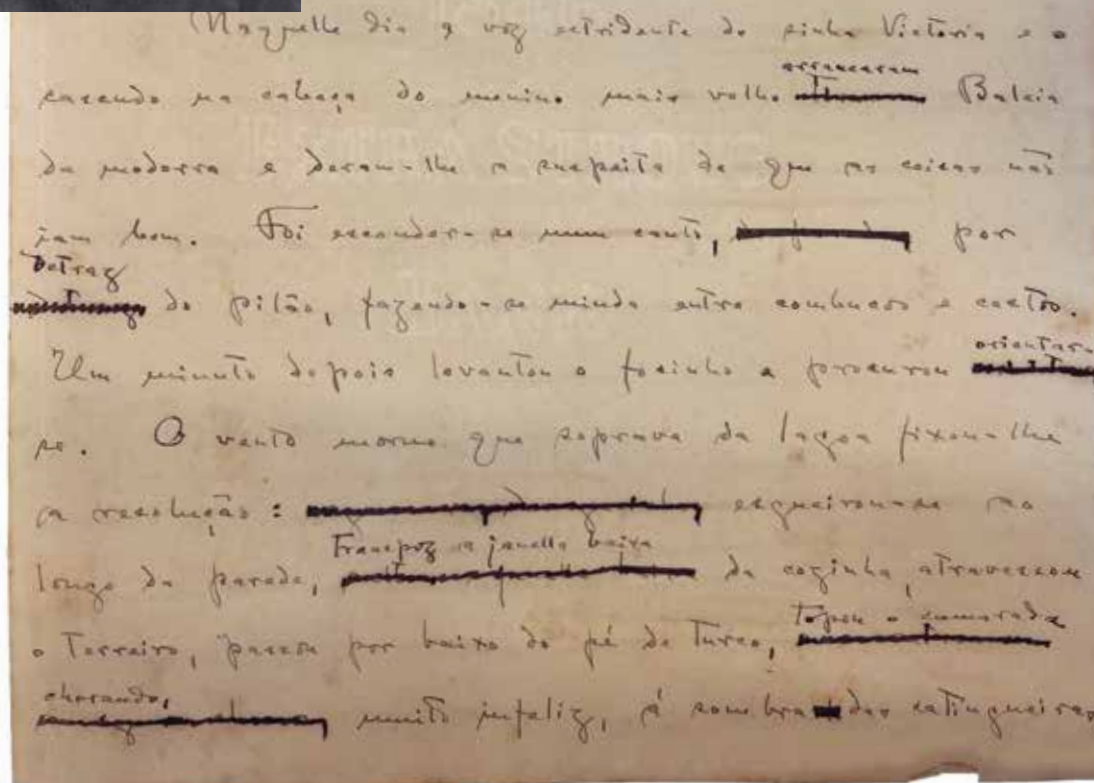 Naquelle dia a voz estridente de sinha Victoria e o
cascudo na cabeça do menino mais velho arrancaram Baleia
da modorra e deram-lhe a suspeita de que as coisas não
iam bem. Foi esconder-se num canto, por
detraz do pilão, fazendo-se miuda entre combucos e cestos.
Um minuto depois levantou o focinho e procurou orientar-
se. O vento morno que soprava da lagoa fixou-lhe
a resolução: esgueirou-se ao
longo da parede, transpoz a janella baixa da cozinha, atravessou
o terreiro, passou por baixo do pé de turco, topou o camarada
chorando, muito infeliz, á sombra das catingueiras